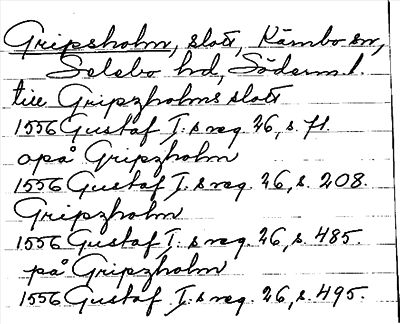 Gripsholm, slott, Kärnbo sn,
Selebo hd, Söderm. l.
till Gripzholms slott
1556 Gustaf I:s reg. 26, s. 71.
opå Gripzholm
1556 Gustaf I:s reg. 26, s. 208.
Gripzholm
1556 Gustaf I:s reg. 26, s. 485.
på Gripzholm
1556 Gustaf I:s reg. 26, s. 495.